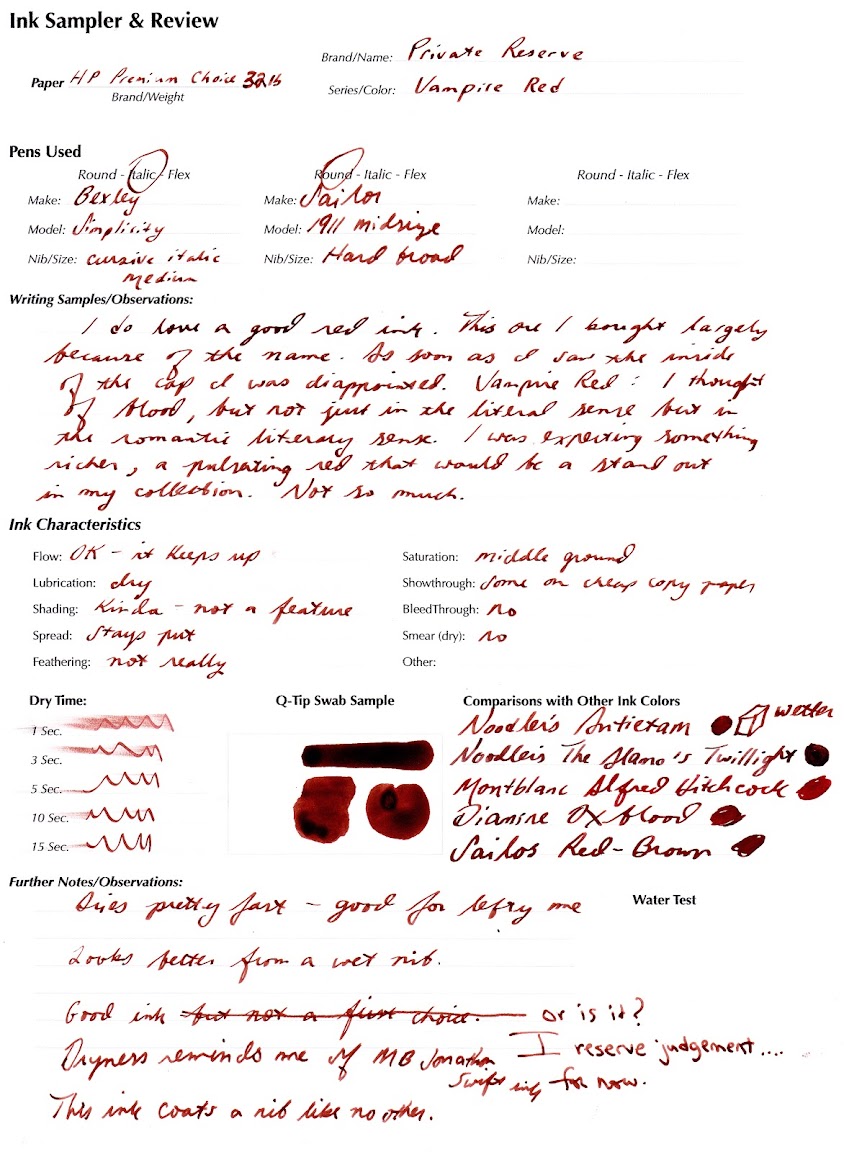 Ink Sampler & Review
Brand/Name: Private Reserve
Paper HP Premium Choice 32lb
Brand/Weight
Series/Color: Vampire Red
Pens Used
Round - Italic - Flex
Round - Italic - Flex
Round - Italic - Flex
Make: Bexley
Make: Sailor
Make:
Model: Simplicity
Model: 1911 midsize
Model:
Nib/Size: cursive italic
medium
Nib/Size: Hard broad
Nib/Size:
Writing Samples/Observations:
I do love a good red ink. This one I bought largely
because of the name. As soon as I saw the inside
of the cap I was disappointed. Vampire Red: I thought
of blood, but not just in the literal sense but in
the romantic literary sense. I was expecting something
richer, a pulsating red that would be a stand out
in my collection. Not so much.
Ink Characteristics
Flow: OK - it keeps up
Saturation: middle ground
Lubrication: dry
Showthrough: some on cheap copy paper
Shading: Kinda - not a feature
BleedThrough: no
Spread: Stays put
Smear (dry): no
Feathering: not really
Other:
Dry Time:
1 Sec.
3 Sec.
5 Sec.
10 Sec.
15 Sec.
Q-Tip Swab Sample
Comparisons with Other Ink Colors
Noodler's Antietam wetter
Noodler's The Alamo's Twillight
Montblanc Alfred Hitchcock
Diamine Oxblood
Sailor Red-Brown
Further Notes/Observations:
Water Test
Dries pretty fast - good for lefty me
Looks better from a wet nib.
Good ink but not a first choice. or is it?
I reserve judgement....
for now.
Dryness reminds me of MB Jonathan
Swift ink
This ink coats a nib like no other.